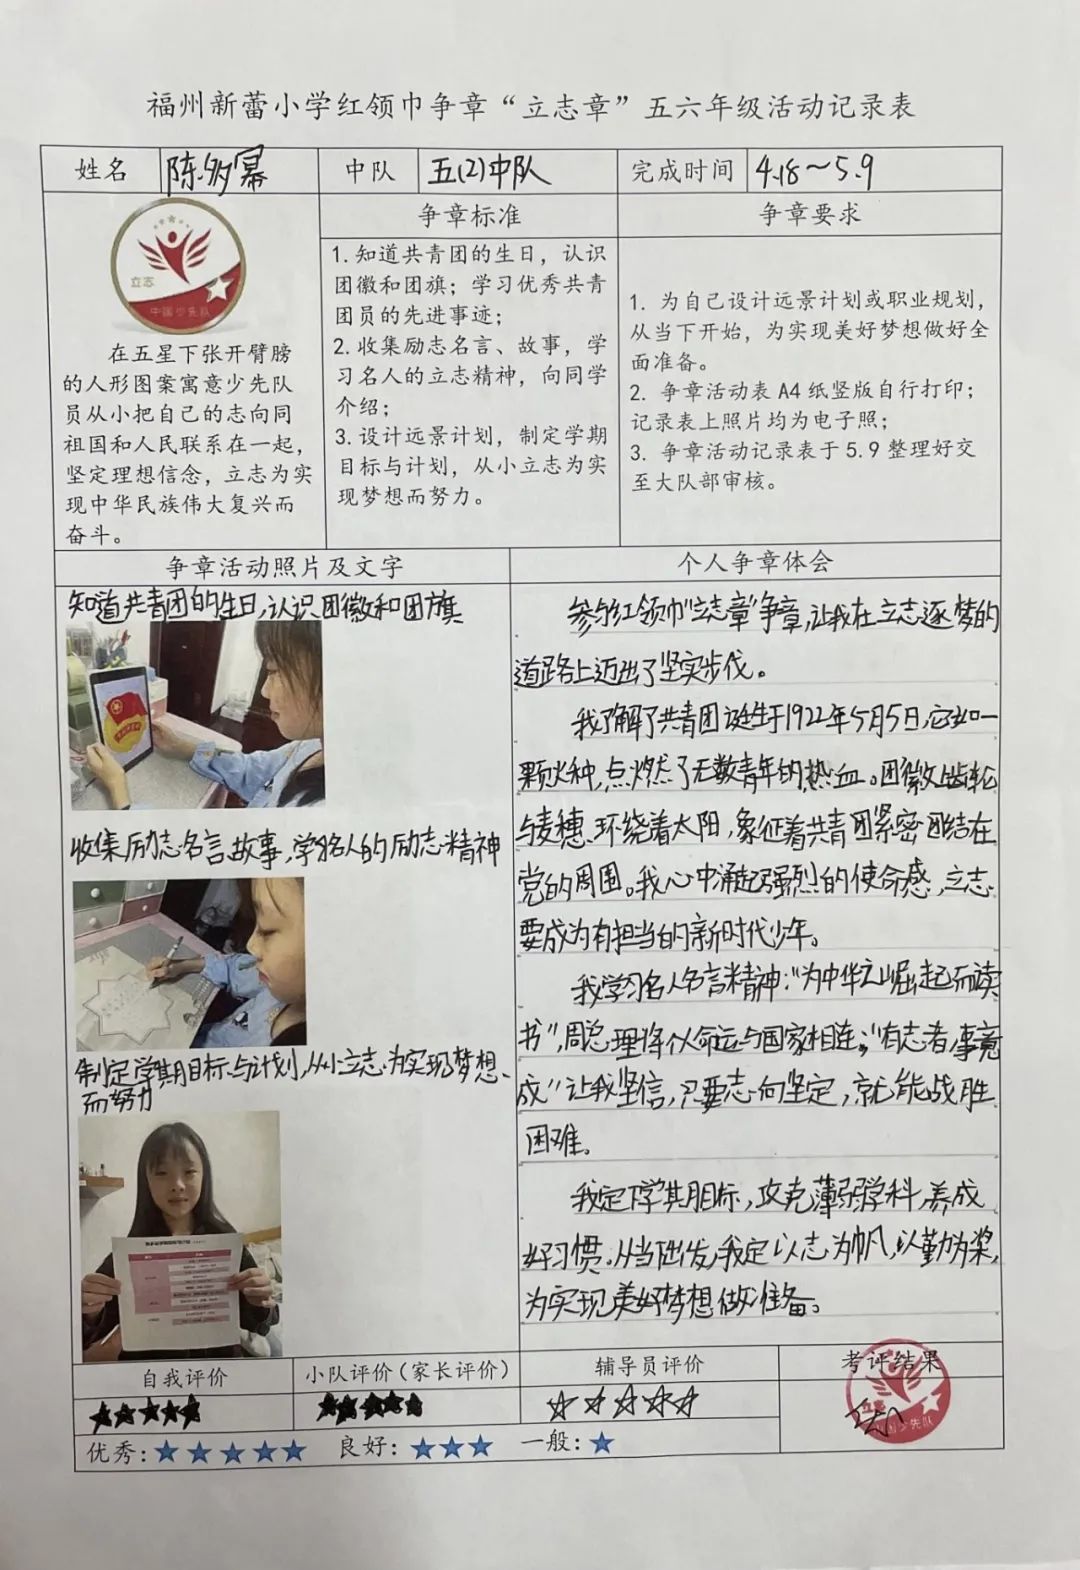 福州新蕾小学红领巾争章“立志章”五六年级活动记录表
姓名 陈多幂 中队 五(2)中队 完成时间 4.18～5.9
立志
中国少先队
在五星下张开臂膀
的人形图案寓意少先队
员从小把自己的志向同
祖国和人民联系在一起，
坚定理想信念，立志为实
现中华民族伟大复兴而
奋斗。
争章标准
1. 知道共青团的生日，认识
团徽和团旗；学习优秀共青
团员的先进事迹；
2. 收集励志名言、故事，学
习名人的立志精神，向同学
介绍；
3. 设计远景计划，制定学期
目标与计划，从小立志为实
现梦想而努力。
争章要求
1. 为自己设计远景计划或职业规划，
从当下开始，为实现美好梦想做好全
面准备。
2. 争章活动表 A4 纸竖版自行打印；
记录表上照片均为电子照；
3. 争章活动记录表于 5.9 整理好交
至大队部审核。
争章活动照片及文字
知道共青团的生日，认识团徽和团旗
收集励志名言、故事，学习名人的励志精神
制定学期目标与计划，从小立志为实现梦想
而努力
个人争章体会
参与红领巾“立志章”争章，让我在立志逐梦的
道路上迈出了坚实步伐。
我了解了共青团诞生于1922年5月5日，它如一
颗火种，点燃了无数青年的热血。团徽上齿轮
与麦穗环绕着太阳，象征着共青团紧密团结在
党的周围。我心中涌起强烈的使命感，立志
要成为有担当的新时代少年。
我学习名人名言精神：“为中华之崛起而读
书”，周总理将个人命运与国家相连；“有志者，事竟
成”让我坚信，只要志向坚定，就能战胜
困难。
我定下学期目标，攻克薄弱学科，养成
好习惯。从当下出发，我定以志为帆，以勤为桨，
为实现美好梦想做准备。
自我评价 小队评价（家长评价） 辅导员评价 考评结果
★★★★★ ★★★★★ ☆☆☆☆☆
优秀：★★★★★ 良好：★★★ 一般：★